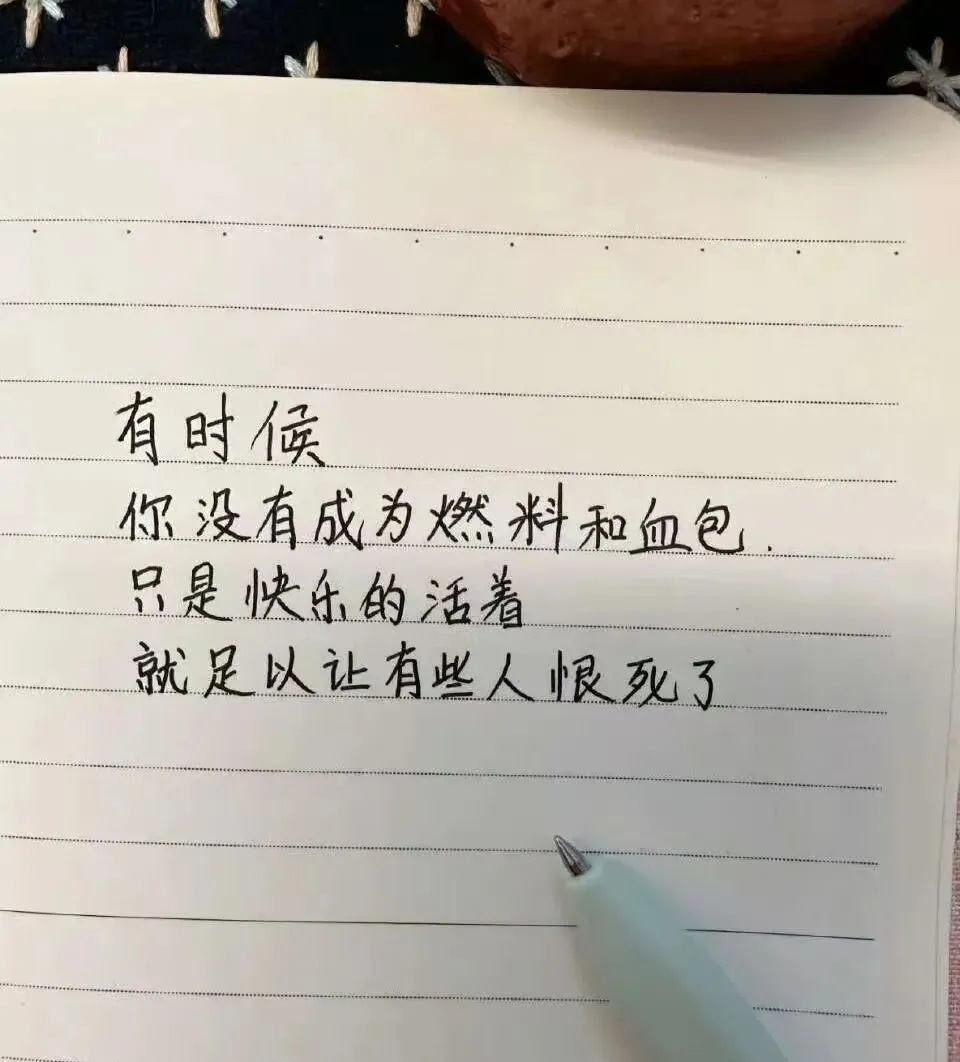 有时候
你没有成为燃料和血包.
只是快乐的活着
就足以让有些人恨死了